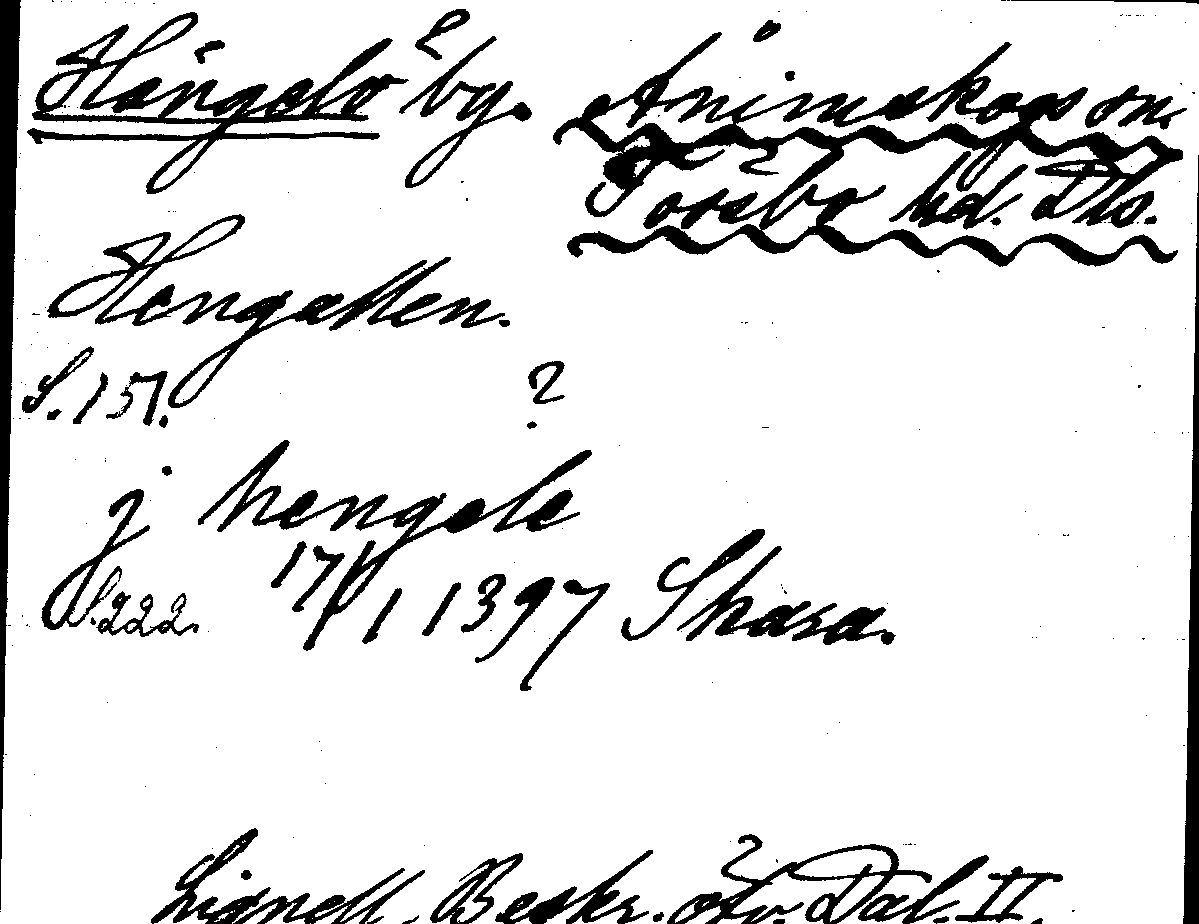 Hängelö by. Ånimskogs sn.
Tössbo hd. Dls.
Hengatten.
S. 151. ?
j hengele
S. 222. 17/1 1397 Skara.
Lignell, Beskr. öfv. Dal. II.